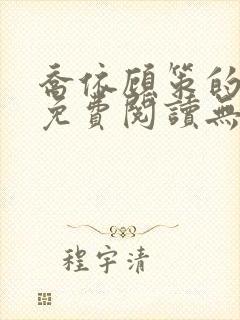 喬依顧策的
免費閱讀無
程宇清